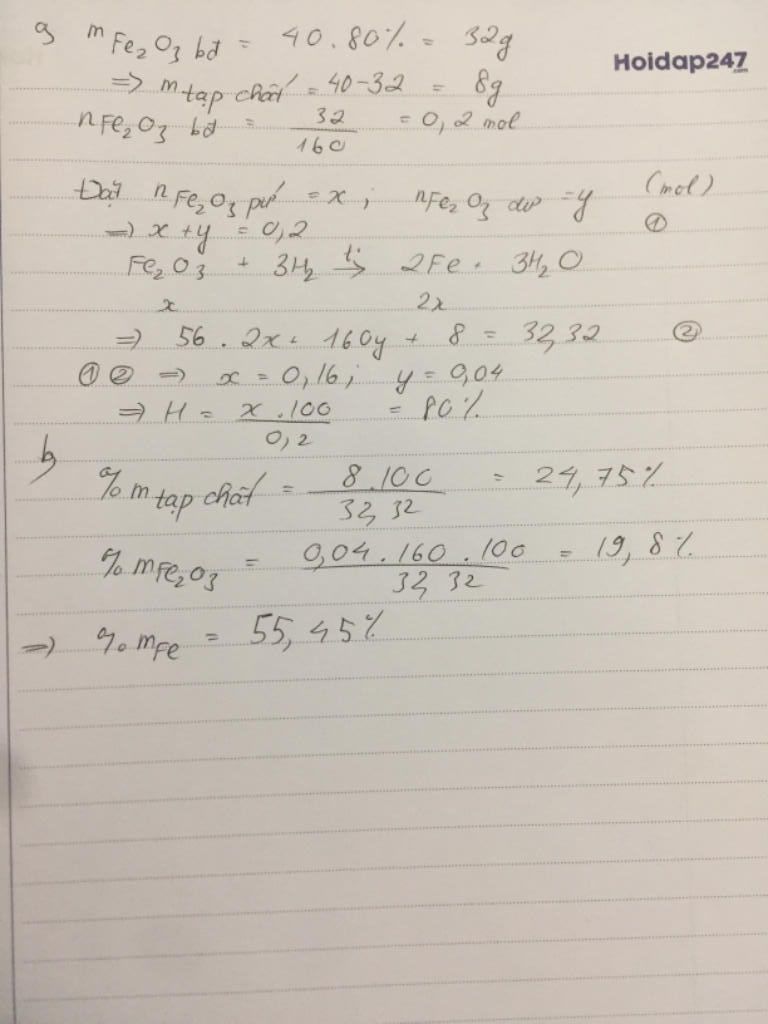 a, mFe₂O₃ bđ = 40.80% = 32g
Hoidap247.com
=> m tạp chất = 40-32 = 8g
nFe₂O₃ bđ = 32/160 = 0,2 mol
Đặt nFe₂O₃ pứ = x ; nFe₂O₃ dư = y (mol)
=> x + y = 0,2 ①
Fe₂O₃ + 3H₂ t°→ 2Fe + 3H₂O
x 2x
=> 56 . 2x + 160y + 8 = 32,32 ②
① ② => x = 0,16 ; y = 0,04
=> H = x .100/0,2 = 80%
b,
% m tạp chất = 8.100/32,32 = 24,75%
% mFe₂O₃ = 0,04.160.100/32,32 = 19,8%
=> % mFe = 55,45%